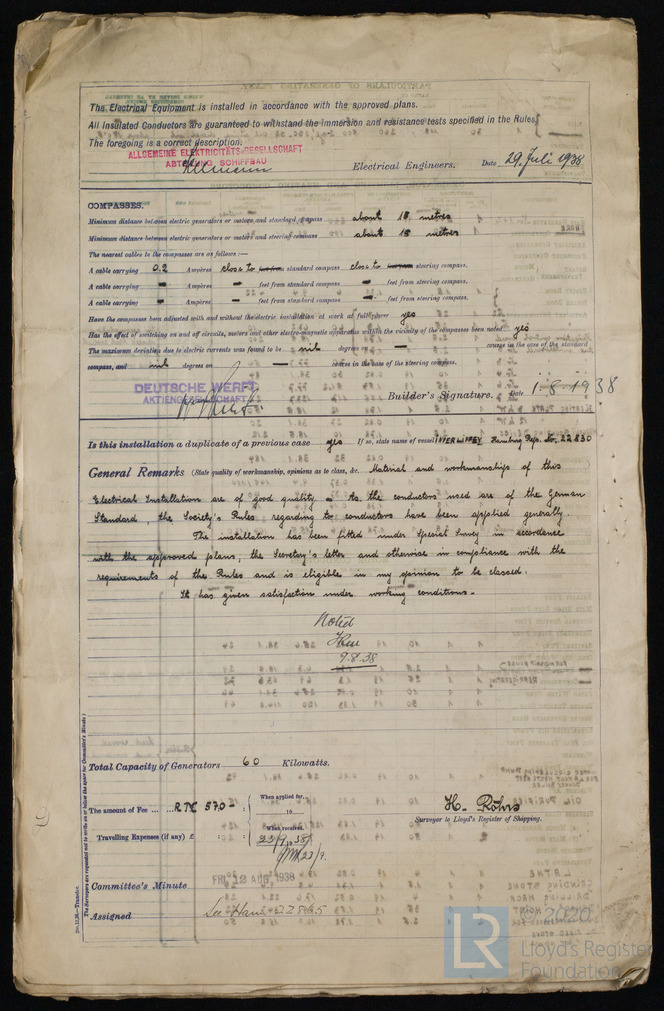 The Electrical Equipment is installed in accordance with the approved plans.
All Insulated Conductors are guaranteed to withstand the immersion and resistance tests specified in the Rules.
The foregoing is a correct description.
ALLGEMEINE ELEKTRICITÄTS-GESELLSCHAFT
ABTEILUNG SCHIFFBAU
Electrical Engineers. Date 29. Juli 1938
COMPASSES.
Minimum distance between electric generators or motors and standard compass about 15 metres
Minimum distance between electric generators or motors and steering compass about 15 metres
The nearest cables to the compasses are as follows:—
A cable carrying 0.2 Ampères close to standard compass close to steering compass.
A cable carrying - Ampères - feet from standard compass - feet from steering compass.
A cable carrying - Ampères - feet from standard compass - feet from steering compass.
Have the compasses been adjusted with and without the electric installation at work at full power yes
Has the effect of switching on and off circuits, motors and other electro-magnetic apparatus within the vicinity of the compasses been noted yes
The maximum deviation due to electric currents was found to be nil degrees on — course in the case of the standard
compass, and nil degrees on — course in the case of the steering compass.
DEUTSCHE WERFT
AKTIENGESELLSCHAFT
Builder's Signature. Date 1.8.1938
Is this installation a duplicate of a previous case yes If so, state name of vessel INVERLIFFEY Hamburg Rep. No. 22830
General Remarks (State quality of workmanship, opinions as to class, &c. Material and workmanship of this
Electrical Installation are of good quality. - As the conductors used are of the German
Standard, the Society's Rules regarding to conductors have been applied generally.
The installation has been fitted under Special Survey in accordance
with the approved plans, the Secretary's letter and otherwise in compliance with the
requirements of the Rules and is eligible in my opinion to be classed.
It has given satisfaction under working conditions.-
Noted
9.8.38
Total Capacity of Generators 60 Kilowatts.
The amount of Fee ... RM 570.-
When applied for,
Travelling Expenses (if any) £
When received,
22/9/38
23/9.
H. Röhrs
Surveyor to Lloyd's Register of Shipping.
Committee's Minute FRI 12 AUG 1938
Assigned See Ham
The Surveyors are requested not to write on or below the space for Committee's Minute.
© 2020
LR
Lloyd's Register
Foundation